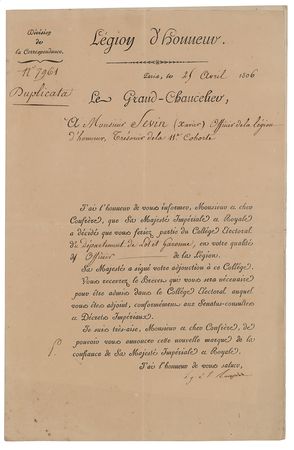 Division
de la
Correspondance.
N.º 7961
Duplicata
Légion d'Honneur.
Paris, le 25 Avril 1806
Le Grand-Chancelier,
A Monsieur Sevin (Xavier) Officier de la légion
d'honneur, Trésorier de la 11e Cohorte
J'ai l'honneur de vous informer, Monsieur et cher
Confrère, que Sa Majesté Impériale et Royale
a décidé que vous feriez partie du Collège Electoral
de département de Lot et Garonne, en votre qualité
d' Officier de la Légion.
Sa Majesté a signé votre adjonction à ce Collège.
Vous recevrez le Brevet qui vous sera nécessaire
pour être admis dans le Collège Electoral auquel
vous êtes adjoint, conformément aux Senatus-consultes
et Décrets Impériaux.
Je suis très-aise, Monsieur et cher Confrère, de
pouvoir vous annoncer cette nouvelle marque de la
confiance de Sa Majesté Impériale et Royale.
J'ai l'honneur de vous saluer,